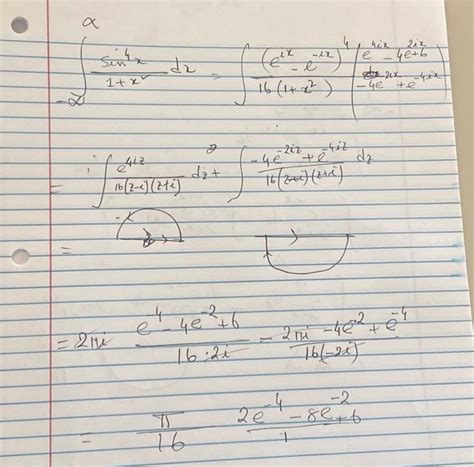 ∝
∫ sin⁴x / 1+x² dx = ∫ (e^{ix} - e^{-ix})⁴ / 16(1+x²) (e^{4ix} - 4e^{2ix}+6
-∝ -4e^{-2ix} + e^{-4ix})
= ∫ e^{4iz} / 16(z-i)(z+i) dz + ∫ -4e^{-2iz} + e^{-4iz} / 16(z-i)(z+i) dz
=
= 2πi e^{-4} - 4e^{-2} + 6 / 16·2i - 2πi -4e^{-2} + e^{-4} / 16(-2i)
= π / 16 2e^{-4} - 8e^{-2} + 6 / 1